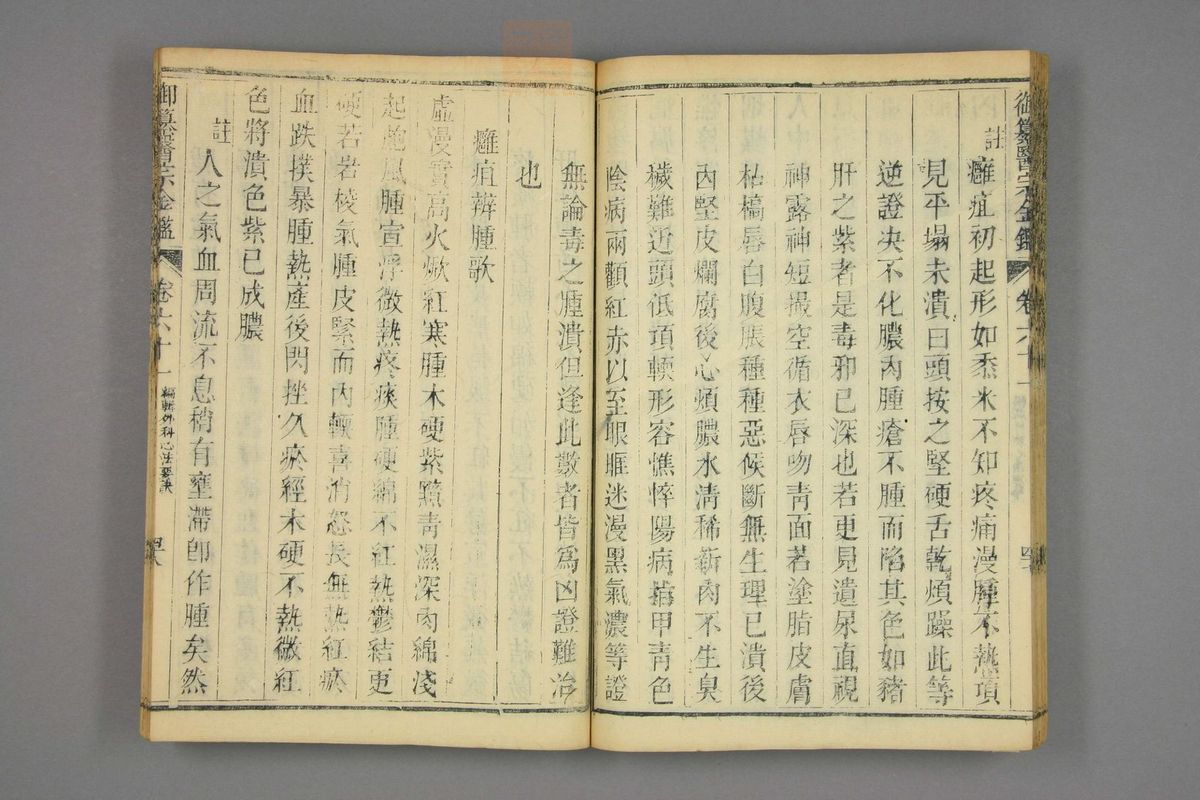 御纂醫宗金鑑 卷六十一
註癰疽初起形如黍米不知疼痛漫腫不熱項
見平塌未潰曰頭按之堅硬舌乾煩躁此等
逆證决不化膿肉腫瘡不腫而陷其色如豬
肝之紫者是毒邪已深也若更見遺尿直視
神露神短撮空循衣唇吻靑面若塗脂皮膚
枯槁唇白腹脹種種惡候斷無生理已潰後
內堅皮爛腐後心煩膿水淸稀新肉不生臭
穢難近頭低項輭形容憔悴陽病指甲靑色
陰病兩顴紅赤以至眼眶迷漫黑氣濃等證
無論毒之腫潰但逢此數者皆爲凶證難治
也
癰疽辨腫歌
虛漫實高火焮紅寒腫木硬紫黯靑濕深肉綿淺
起皰風腫宣浮微熱疼痰腫硬綿不紅熱鬱結更
硬若岩棱氣腫皮緊而內輭喜消怒長無熱紅瘀
血跌撲暴腫熱產後閃挫久瘀經木硬不熱微紅
色將潰色紫已成膿
註人之氣血周流不息稍有壅滯卽作腫矣然
御纂醫宗金鑑 卷六十一 編輯外科心法要訣